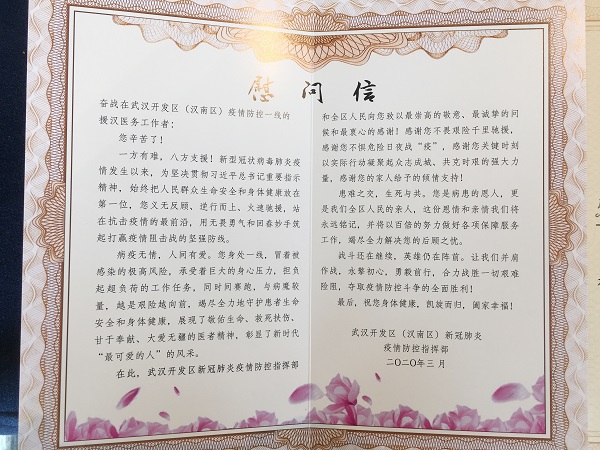 慰问信
奋战在武汉开发区（汉南区）疫情防控一线的
援汉医务工作者：
您辛苦了！
一方有难，八方支援！新型冠状病毒肺炎疫
情发生以来，为坚决贯彻习近平总书记重要指示
精神，始终把人民群众生命安全和身体健康放在
第一位，您义无反顾、逆行而上，火速驰援，站
在抗击疫情的最前沿，用无畏勇气和回春妙手筑
起打赢疫情阻击战的坚强防线。
病疫无情，人间有爱。您身处一线，冒着被
感染的极高风险，承受着巨大的身心压力，担负
起超负荷的工作任务，同时间赛跑，与病魔较
量，越是艰险越向前，竭尽全力地守护患者生命
安全和身体健康，展现了敬佑生命、救死扶伤、
甘于奉献、大爱无疆的医者精神，彰显了新时代
“最可爱的人”的风采。
在此，武汉开发区新冠肺炎疫情防控指挥部
和全区人民向您致以最崇高的敬意、最诚挚的问
候和最衷心的感谢！感谢您不畏艰险千里驰援，
感谢您不惧危险日夜战“疫”，感谢您关键时刻
以实际行动凝聚起众志成城、共克时艰的强大力
量，感谢您的家人给予的倾情支持！
患难之交，生死与共。您是病患的恩人，更
是我们全区人民的亲人，这份恩情和亲情我们将
永远铭记，并将以百倍的努力做好各项保障服务
工作，竭尽全力解决您的后顾之忧。
战斗还在继续，英雄仍在阵前。让我们并肩
作战，永擎初心，勇毅前行，合力战胜一切艰难
险阻，夺取疫情防控斗争的全面胜利！
最后，祝您身体健康，凯旋而归，阖家幸福！
武汉开发区（汉南区）新冠肺炎
疫情防控指挥部
二〇二〇年三月